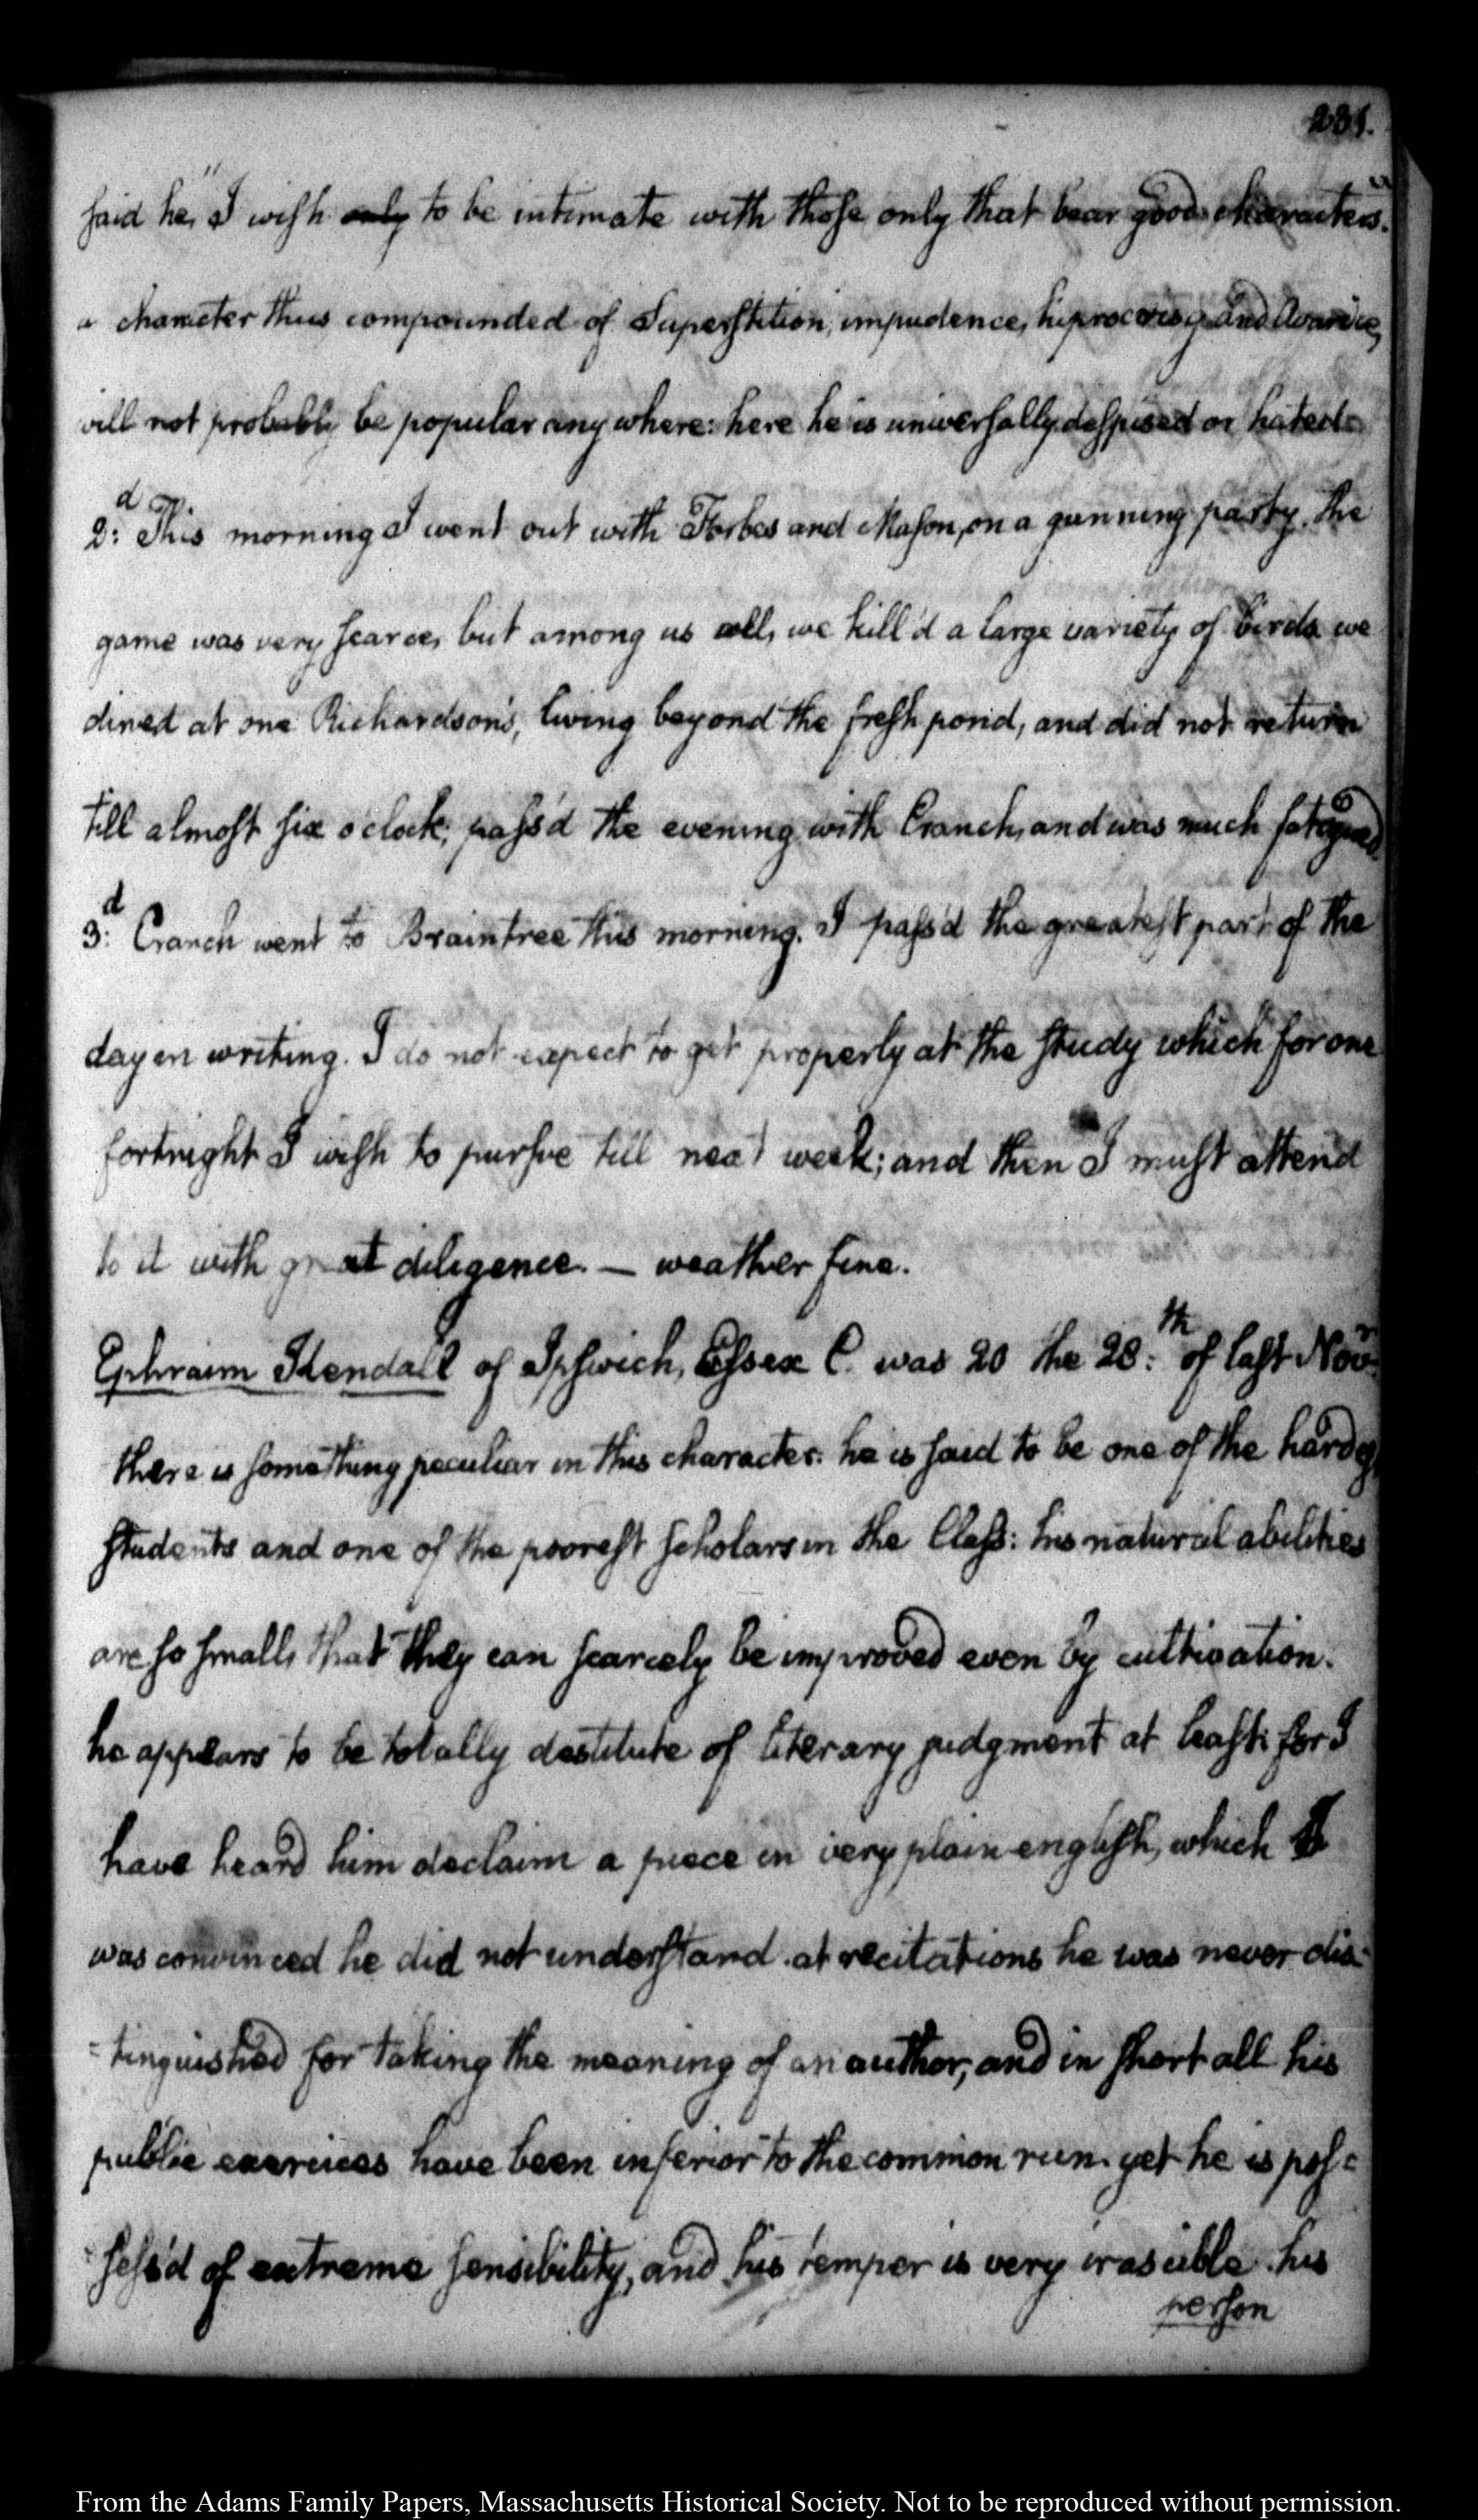 231.
said he, "I wish only to be intimate with those only that bear good characters."
a character thus compounded of Superstition, impudence, hiprocrisy and Avarice,
will not probably be popular any where: here he is universally despised or hated.
2:d This morning I went out with Forbes and Mason, on a gunning party. the
game was very scarce, but among us all, we kill'd a large variety of birds we
dined at one Richardson's, living beyond the fresh pond, and did not return
till almost six o'clock; pass'd the evening with Cranch, and was much fatigued
3:d Cranch went to Braintree this morning. I pass'd the greatest part of the
day in writing. I do not expect to get properly at the study which for one
fortnight I wish to pursue till next week; and then I must attend
to it with great diligence. — weather fine.
Ephraim Kendall of Ipswich, Essex C. was 20 the 28:th of last Novr
there is something peculiar in this character. he is said to be one of the hardest
students and one of the poorest scholars in the Class: his natural abilities
are so small, that they can scarcely be improved even by cultivation.
he appears to be totally destitute of literary judgment at least: for I
have heard him declaim a piece in very plain english, which I
was convinced he did not understand. at recitations he was never dis-
=tinguished for taking the meaning of an author, and in short all his
public exercises have been inferior to the common run. yet he is pos=
=sess'd of extreme sensibility, and his temper is very irascible. his
person
From the Adams Family Papers, Massachusetts Historical Society. Not to be reproduced without permission.